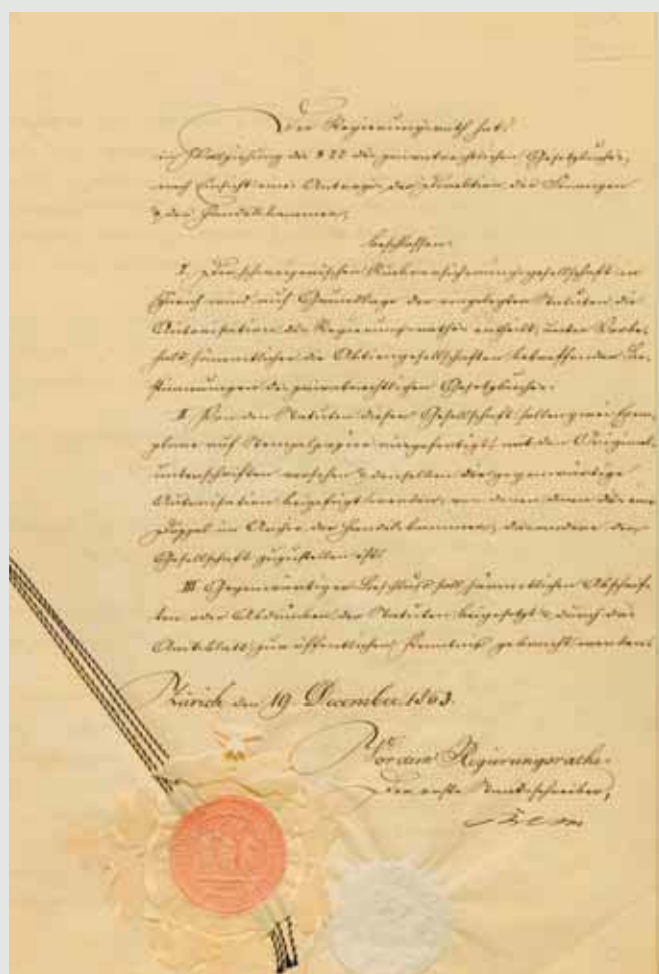 Der Regierungsrath hat,
in Vollziehung des § 22 des privatrechtlichen Gesetzbuches,
nach Einsicht eines Antrages der Direktion der Finanzen
& der Handelskammer,
beschlossen:
I. Der schweizerischen Rückversicherungsgesellschaft in
Zürich wird auf Grundlage der vorgelegten Statuten die
Autorisation des Regierungsrathes ertheilt, unter Vorbe-
halt sämmtlicher die Aktiengesellschaften betreffenden Be-
stimmungen des privatrechtlichen Gesetzbuches.
II. Von den Statuten dieser Gesellschaft sollen zwei Exem-
plare auf Stempelpapier ausgefertigt, mit den Original-
unterschriften versehen & denselben die gegenwärtige
Autorisation beigefügt werden, von denen dann das eine
Doppel im Archiv der Handelskammer, das andere der
Gesellschaft zuzustellen ist.
III. Gegenwärtiger Beschluß soll sämmtlichen Abschrif-
ten oder Abdrücken der Statuten beigesetzt & durch das
Amtsblatt zur öffentlichen Kenntniß gebracht werden.
Zürich den 19. December 1863.
Vor dem Regierungsrathe,
Der erste Staatsschreiber,